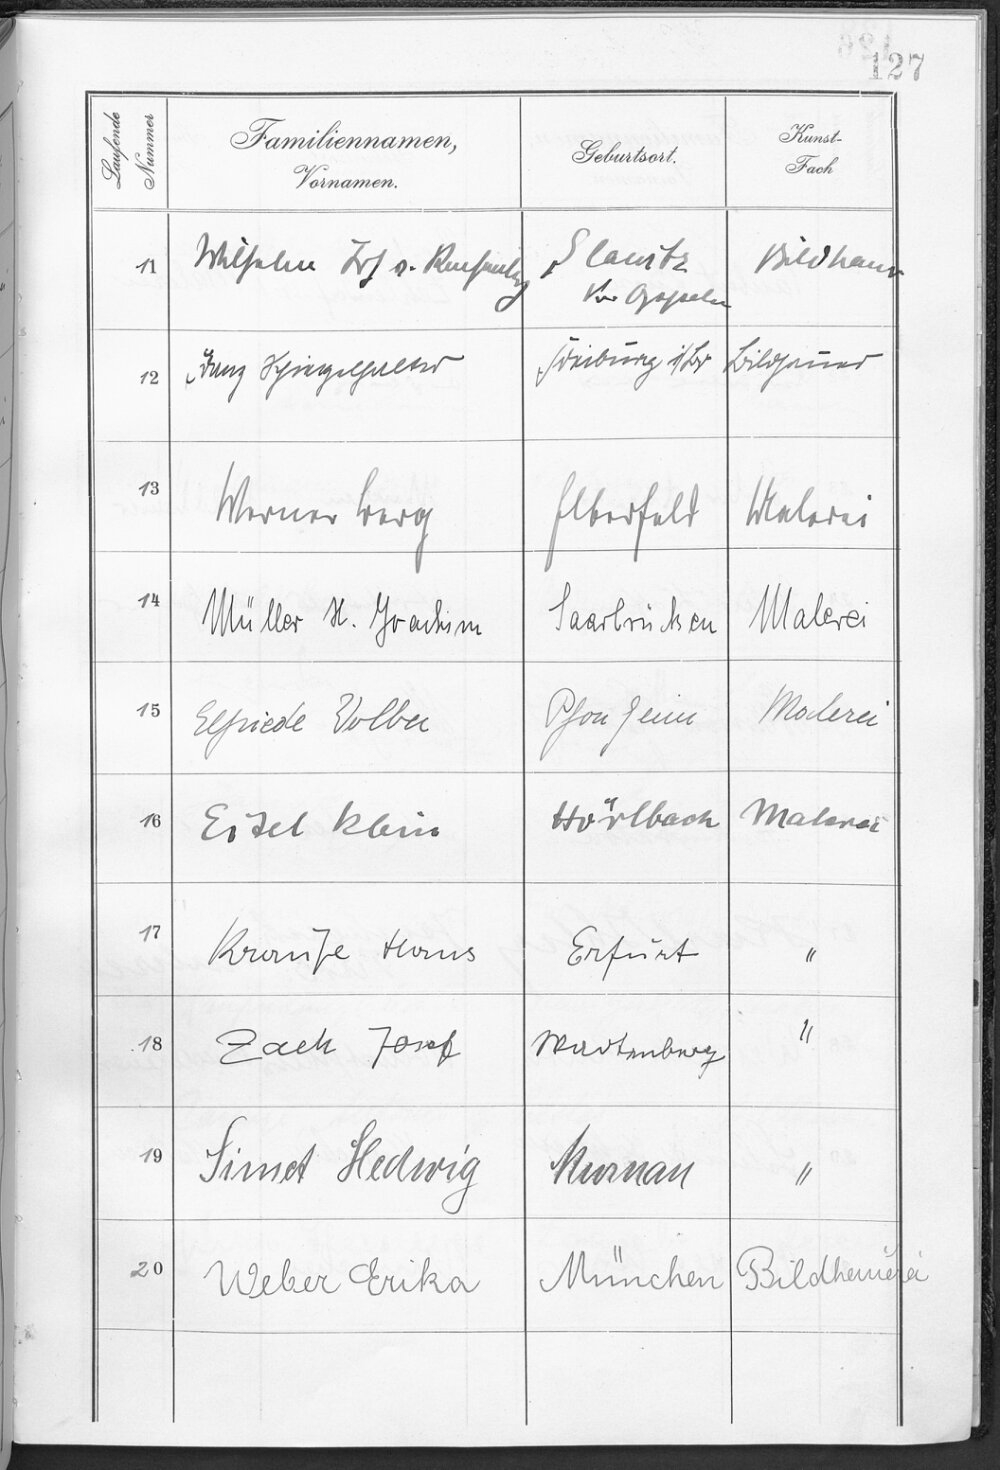 127
Laufende Nummer
Familiennamen, Vornamen.
Geburtsort.
Kunst-Fach
11 Wilhelm Frh v. Slawitz Bildhauer
Kr Oppeln
12 Franz Spiegelhalter Freiburg i/Br Bildhauer
13 Werner Berg Elberfeld Malerei
14 Müller H. Joachim Saarbrücken Malerei
15 Elfriede Volber Pforzheim Malerei
16 Eitel Klein Hörlbach Malerei
17 Krauße Hans Erfurt "
18 Zach Josef Wartenberg "
19 Simet Hedwig Murnau "
20 Weber Erika München Bildhauerei